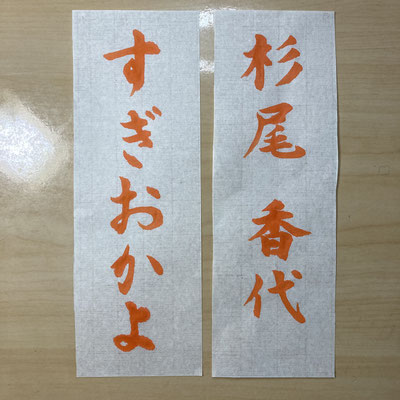 杉尾 香代
すぎおかよ